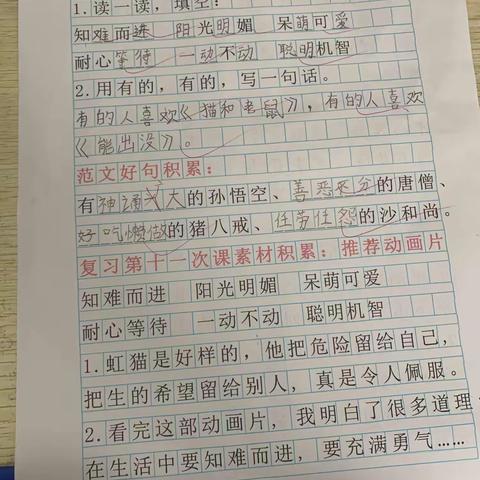 1.读一读，填空：
知难而进 阳光明媚 呆萌可爱
耐心等待 一动不动 聪明机智
2.用有的，有的，写一句话。
有的人喜欢《猫和老鼠》，有的人喜欢
《熊出没》。
范文好句积累：
有神通广大的孙悟空、善恶不分的唐僧、
好吃懒做的猪八戒、任劳任怨的沙和尚。
复习第十一次课素材积累：推荐动画片
知难而进 阳光明媚 呆萌可爱
耐心等待 一动不动 聪明机智
1.虹猫是好样的，他把危险留给自己，
把生的希望留给别人，真是令人佩服。
2.看完这部动画片，我明白了很多道理，
在生活中要知难而进，要充满勇气……